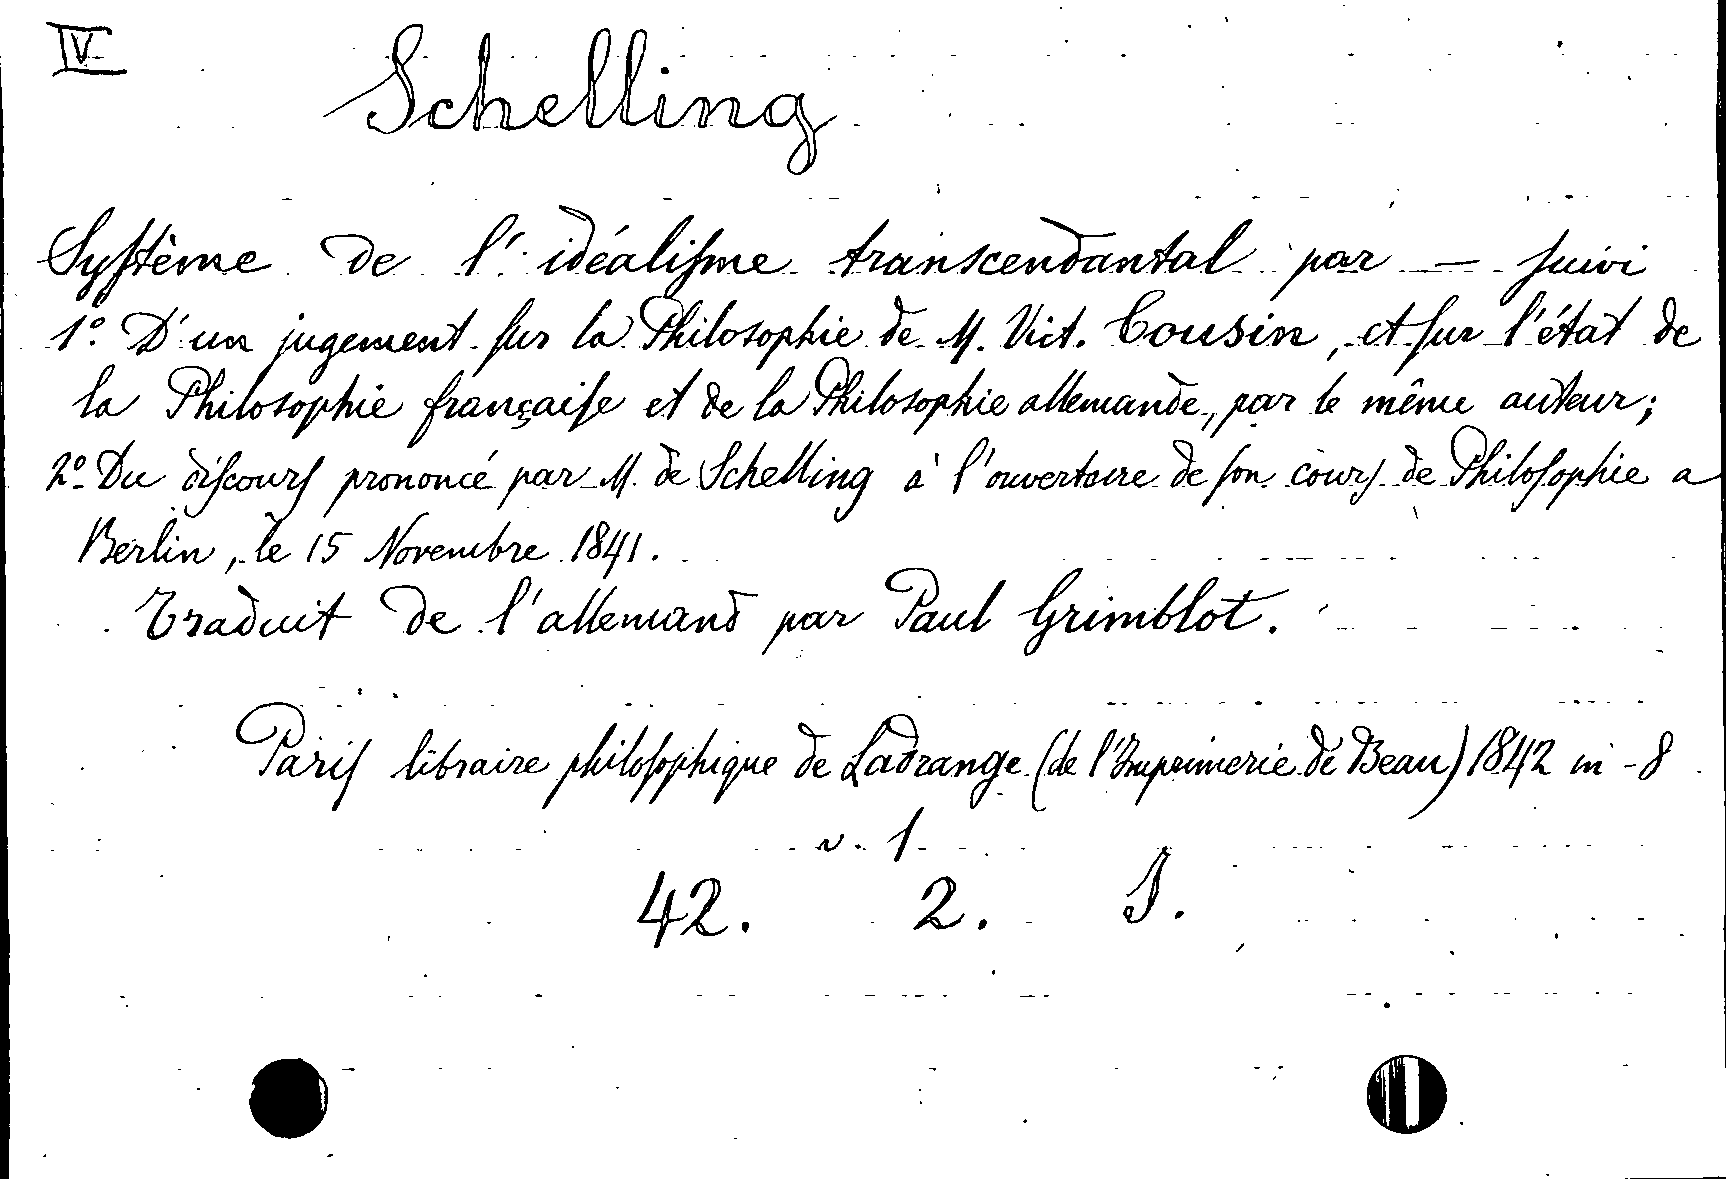 IV
Schelling
Syſtème de l'idéaliſme transcendantal par — ſuivi
1º. D'un jugement ſur la Philosophie de M. Vict. Cousin, et ſur l'état de
la Philosophie françaiſe et de la Philosophie allemande, par le même auteur;
2º. Du diſcours prononcé par M. de Schelling à l'ouverture de ſon cours de Philoſophie a
Berlin, le 15 Novembre 1841.
Traduit de l'allemand par Paul Grimblot.
Paris libraire philoſophique de Ladrange (de l'Imprimerie de Beau) 1842 in-8
v. 1
42. 2. J.